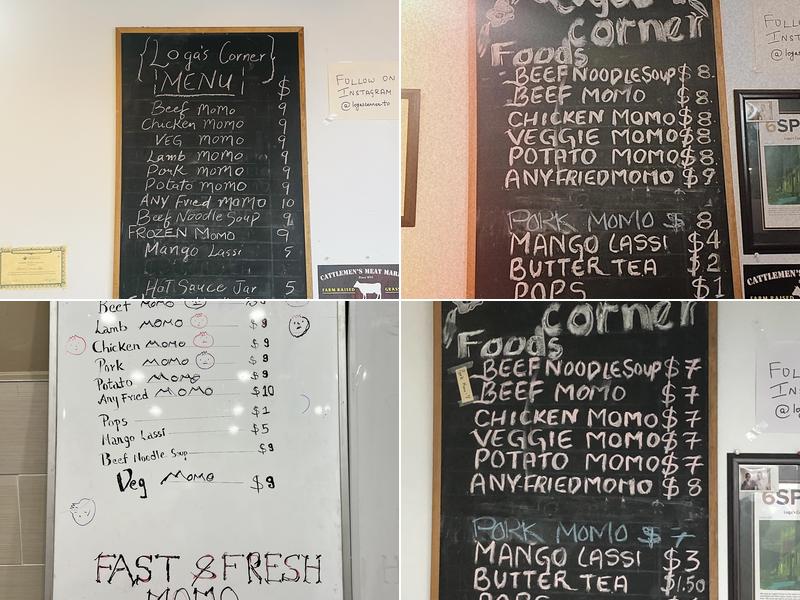 {Loga's Corner}
MENU
$
Beef momo 9
Chicken momo 9
VEG momo 9
Lamb momo 9
Pork momo 9
Potato momo 9
ANY Fried momo 10
Beef Noodle Soup 9
FROZEN Momo 9
Mango Lassi 5
Hot Sauce Jar 5
FOLLOW ON
INSTAGRAM
@logascorner.to
CATTLEMEN'S MEAT MAR
FARM RAISED
GRASS
corner
Foods
BEEF NOODLE SOUP $8
BEEF MOMO $8
CHICKEN MOMO $8
VEGGIE MOMO $8
POTATO MOMO $8
ANY FRIED MOMO $9
PORK MOMO $8
MANGO LASSI $4
BUTTER TEA $2
POPS $1
FOLL
INST
@logas
6SP
CATTLEMEN'S M
FARM RAISED
Beef momo
Lamb momo $9
Chicken momo $9
Pork momo $9
Potato momo $9
Any Fried momo $10
Pops $2
Mango Lassi $5
Beef Noodle Soup $9
Veg momo $9
FAST & FRESH
MOMO
corner
Foods
BEEF NOODLE SOUP $7
BEEF MOMO $7
CHICKEN MOMO $7
VEGGIE MOMO $7
POTATO MOMO $7
ANY FRIED MOMO $8
PORK MOMO $7
MANGO LASSI $3
BUTTER TEA $1.50
POPS
FOL
IN
@lo
6SP